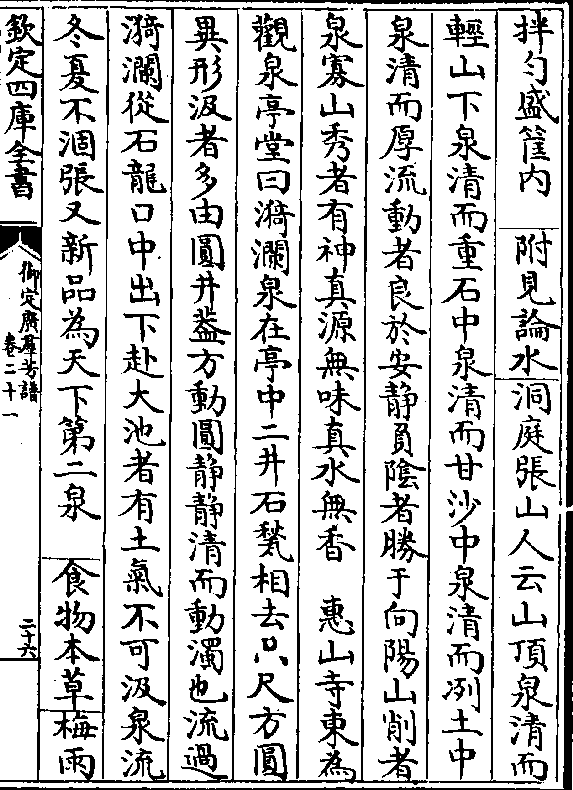 拌勺盛筐内　附見論水洞庭張山人云山頂泉清而
輕山下泉清而重石中泉清而甘沙中泉清而冽土中
泉清而厚流動者良於安靜負陰者勝于向陽山削者
泉寡山秀者有神真源無味真水無香　惠山寺東為
觀泉亭堂曰漪瀾泉在亭中二井石甃相去只尺方圓
異形汲者多由圓井葢方動圓静静清而動濁也流過
漪瀾從石龍口中出下赴大池者有土氣不可汲泉流
冬夏不涸張又新品為天下第二泉　食物本草梅雨
欽定四庫全書
御定廣羣芳譜
卷二十一
二十六